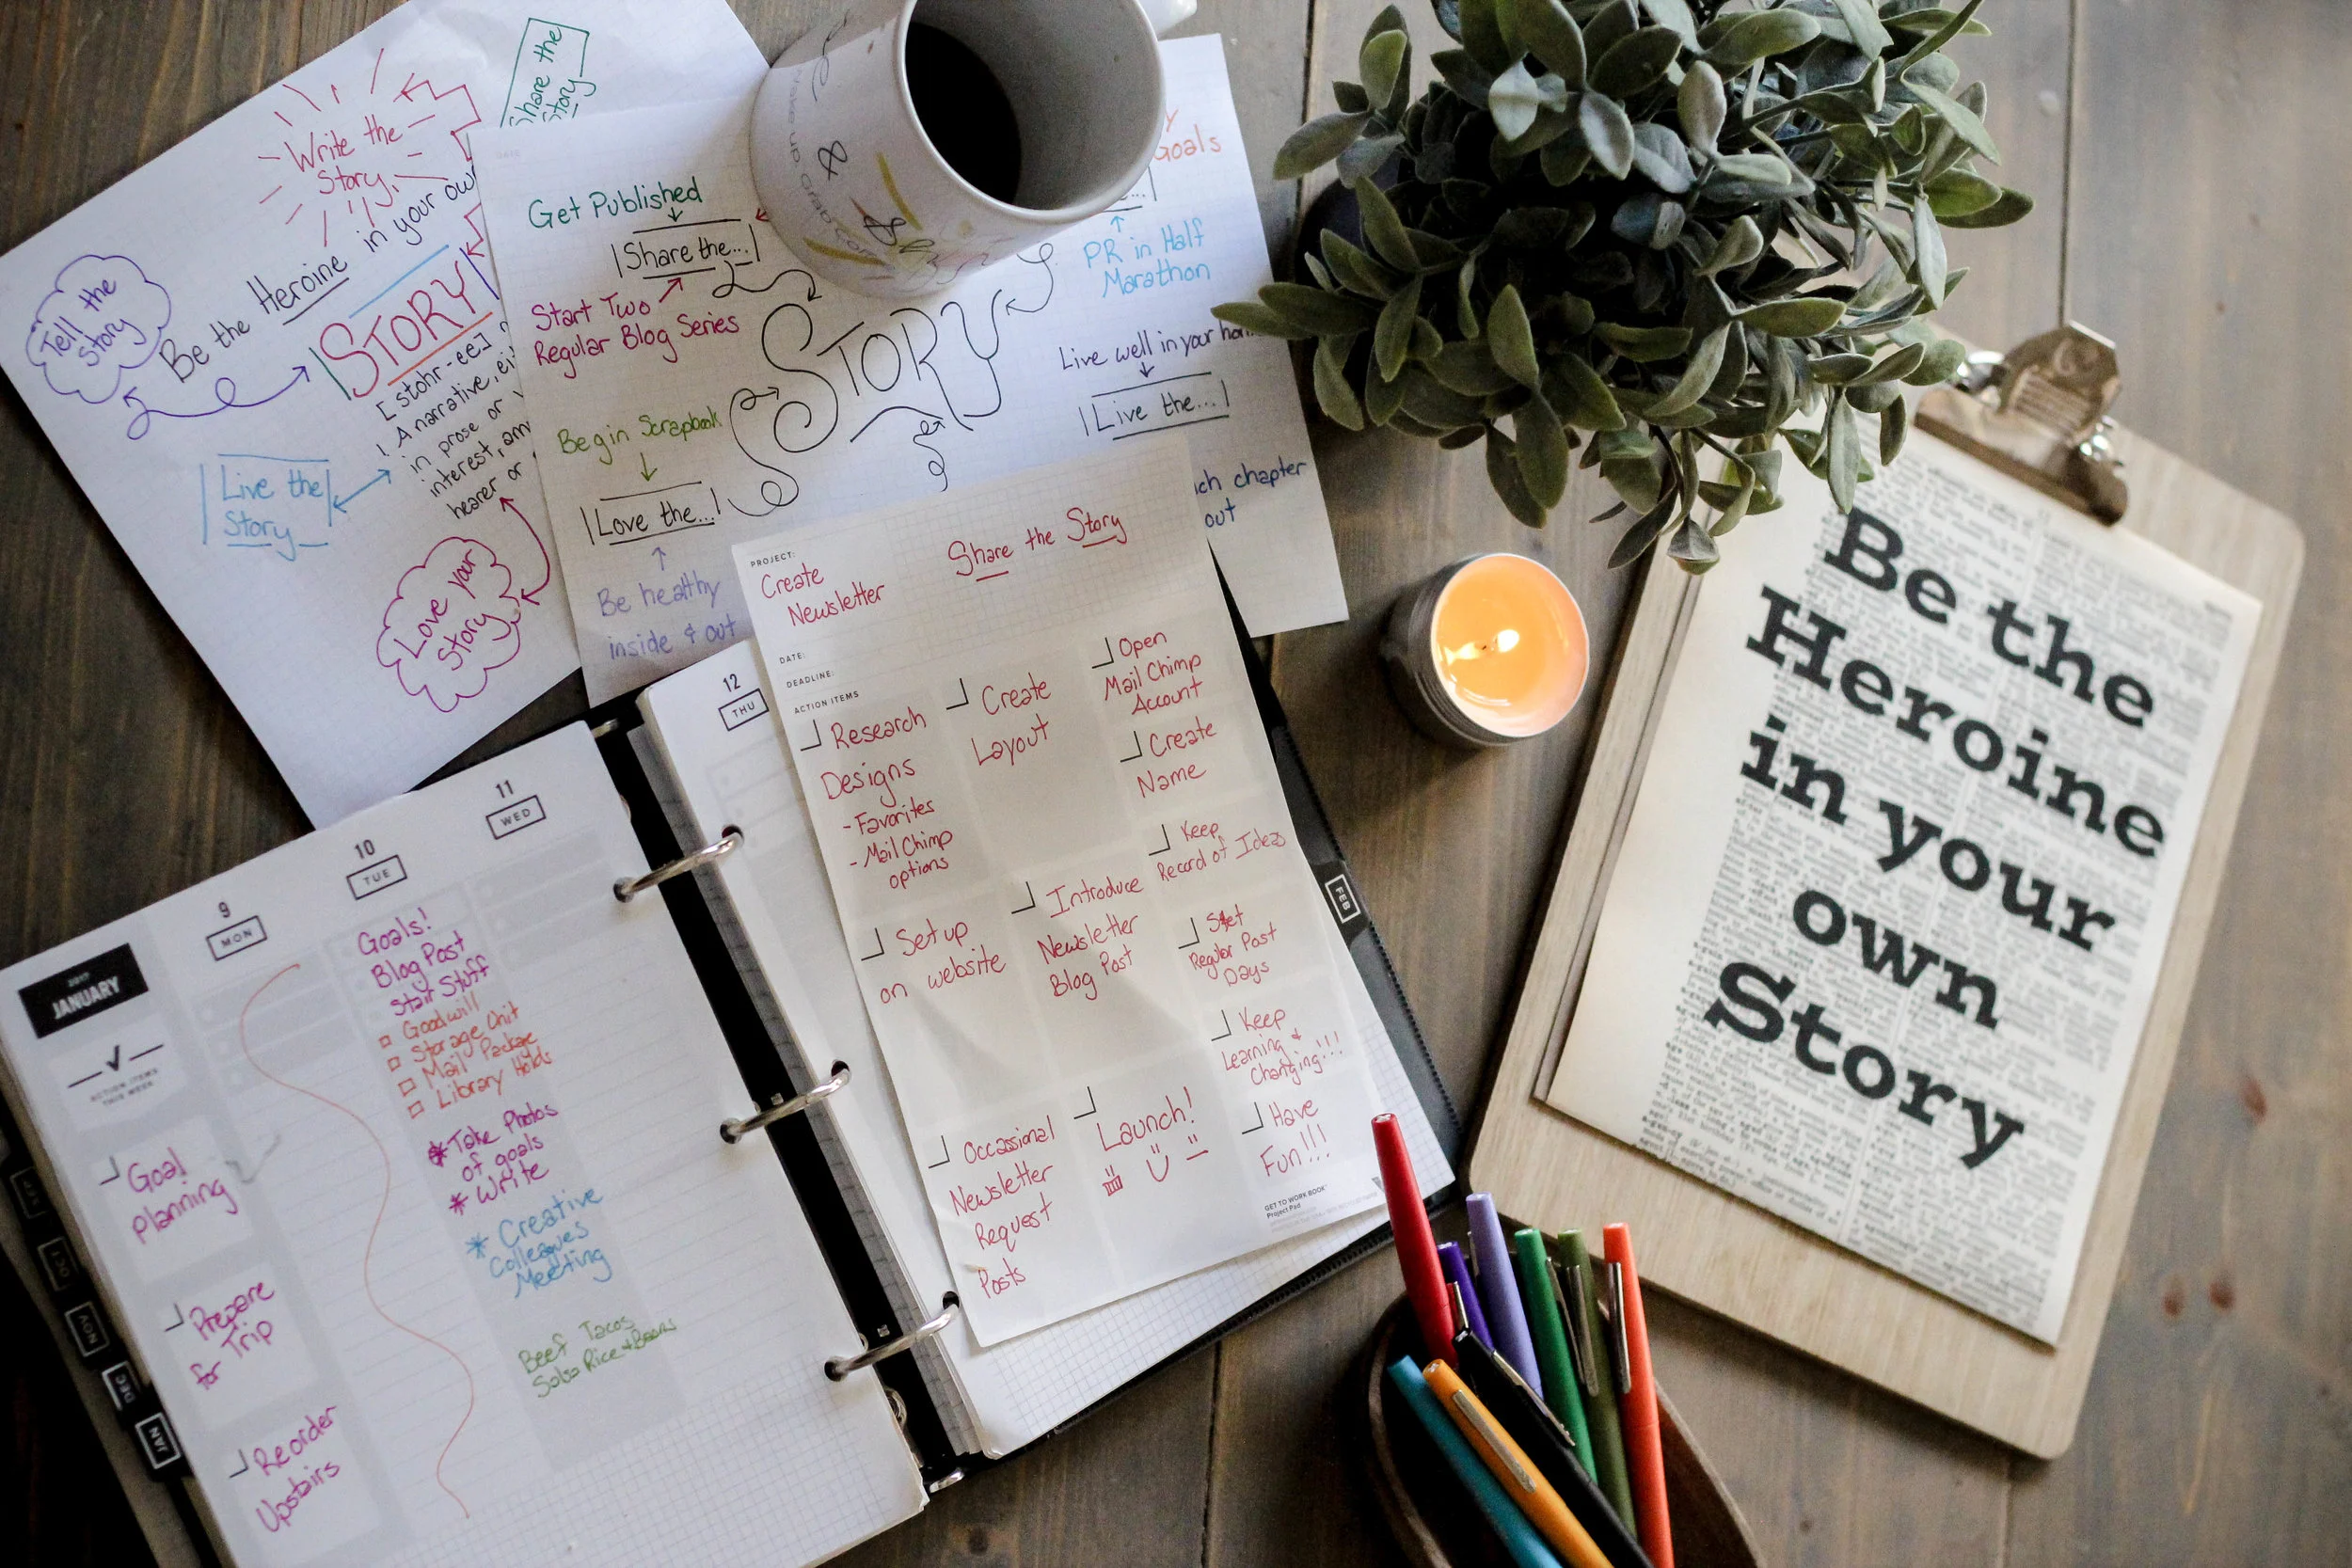 Share the
Story
Write the
Story.
Tell the
Story
Be the Heroine in your own
STORY
[stohr-ee]
A narrative, ei
in prose or
interest, am
hearer or
Live the
Story
Love your
Story
DATE
Get Published
Share the...
Start Two
Regular Blog Series
Begin Scrapbook
Love the...
Be healthy
inside & out
STORY
Goals
PR in Half
Marathon
Live well in your
Live the...
chapter
out
wake up
&
PROJECT:
Create
Newsletter
Share the Story
DATE:
DEADLINE:
ACTION ITEMS
Research
Designs
- Favorites
- Mail Chimp
options
Set up
on website
Occassional
Newsletter
Request
Posts
Create
Layout
Introduce
Newsletter
Blog Post
Launch!
Open
Mail Chimp
Account
Create
Name
Keep
Record of Ideas
Set
Regular Post
Days
Keep
Learning &
Changing!!!
Have
Fun!!!
GET TO WORK BOOK
Project Pad
2017
JANUARY
ACTION ITEMS
THIS WEEK
Goal
Planning
Prepare
for Trip
Reorder
Upstairs
9
MON
10
TUE
Goals!
Blog Post
Stair Stuff
Goodwill
Storage Unit
Mail Package
Library Holds
* Take Photos
of goals
* Write
* Creative
Colleagues
Meeting
Beef Tacos
Salsa Rice & Beans
11
WED
12
THU
SEP
OCT
NOV
DEC
JAN
FEB
Be the
Heroine
in your
own
Story